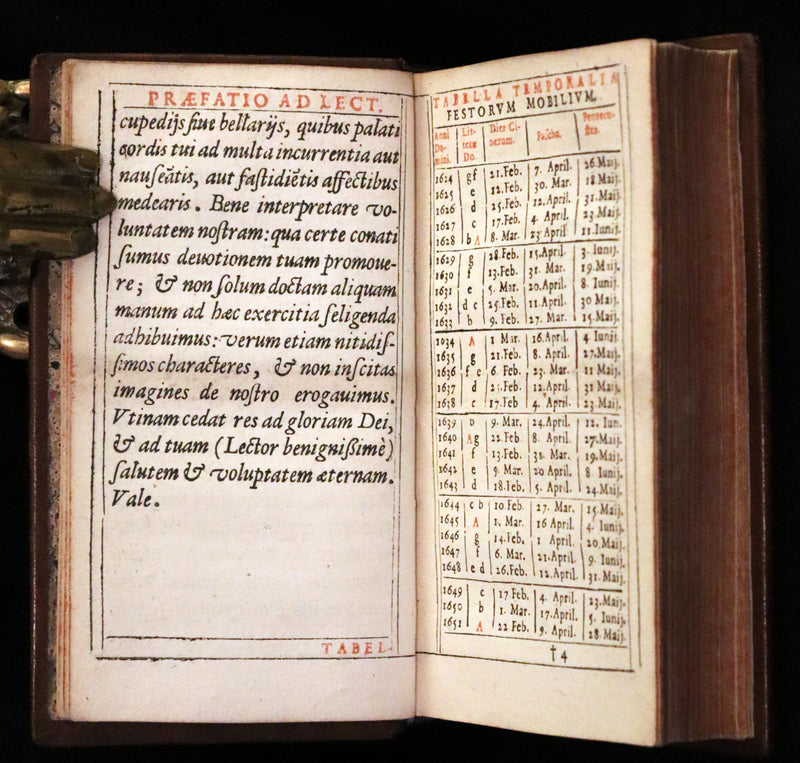 PRÆFATIO AD LECT.
cupedijs ſiue bellarijs, quibus palati
cordis tui ad multa incurrentia aut
nauſeātis, aut faſtidiētis affectibus
medearis. Bene interpretare vo-
luntatem noſtram: qua certe conati
ſumus deuotionem tuam promoue-
re; & non ſolum doctam aliquam
manum ad hæc exercitia ſeligenda
adhibuimus: verum etiam nitidiſ-
ſimos characteres, & non inſcitas
imagines de noſtro erogauimus.
Vtinam cedat res ad gloriam Dei,
& ad tuam (Lector benignißimè)
ſalutem & voluptatem æternam.
Vale.
TABEL-
TABELLA TEMPORALIA
FESTORVM MOBILIVM.
Anni Do- mini. Lit- teræ Do. Dies Ci- nerum. Paſcha. Penteco- ſtes.
1624 gf 21.Feb. 7. April. 26.Maij.
1625 e 12.Feb. 30. Mar. 18.Maij.
1626 d 25.Feb. 12.April. 31.Maij.
1627 c 17.Feb. 4. April. 23.Maij.
1628 b A 8. Mar. 23 April 11.Iunij.
1629 g 28.Feb. 15.April. 3. Iunij.
1630 f 13.Feb. 31. Mar. 19.Maij.
1631 e 5. Mar. 20.April. 8. Iunij.
1632 d c 25.Feb. 11.April. 30 Maij.
1633 b 9. Feb. 27. Mar. 15.Maij.
1034 A 1 Mar. 16.April. 4 Iunij
1635 g 21.Feb. 8. April. 27.Maij.
1636 f e 6 Feb. 23. Mar. 11 Maij
1637 d 25.Feb. 12.April 31 Maij
1638 c 17.Feb 4. April. 23.Maij.
1639 b 9. Mar. 24.April. 12. Iun.
1640 Ag 22.Feb 8. April. 27.Maij.
1641 f 13.Feb. 31. Mar. 19.Maij.
1642 e 9. Mar. 20 April. 8 Iunij.
1643 d 18.Feb. 5. April. 24.Maij.
1644 c b 10.Feb. 27. Mar. 15 Maij.
1645 A 1. Mar. 16 April. 4. Iunij.
1646 g 14.Feb. 1 April. 20.Maij.
1647 f 6. Mar. 21.April. 9. Iunij.
1648 e d 26.Feb. 12.April. 31.Maij.
1649 c 17 Feb. 4. April. 23.Maij.
1650 b 1. Mar. 17.April. 5. Iunij.
1651 A 22 Feb. 9. April. 28.Maij.
†4